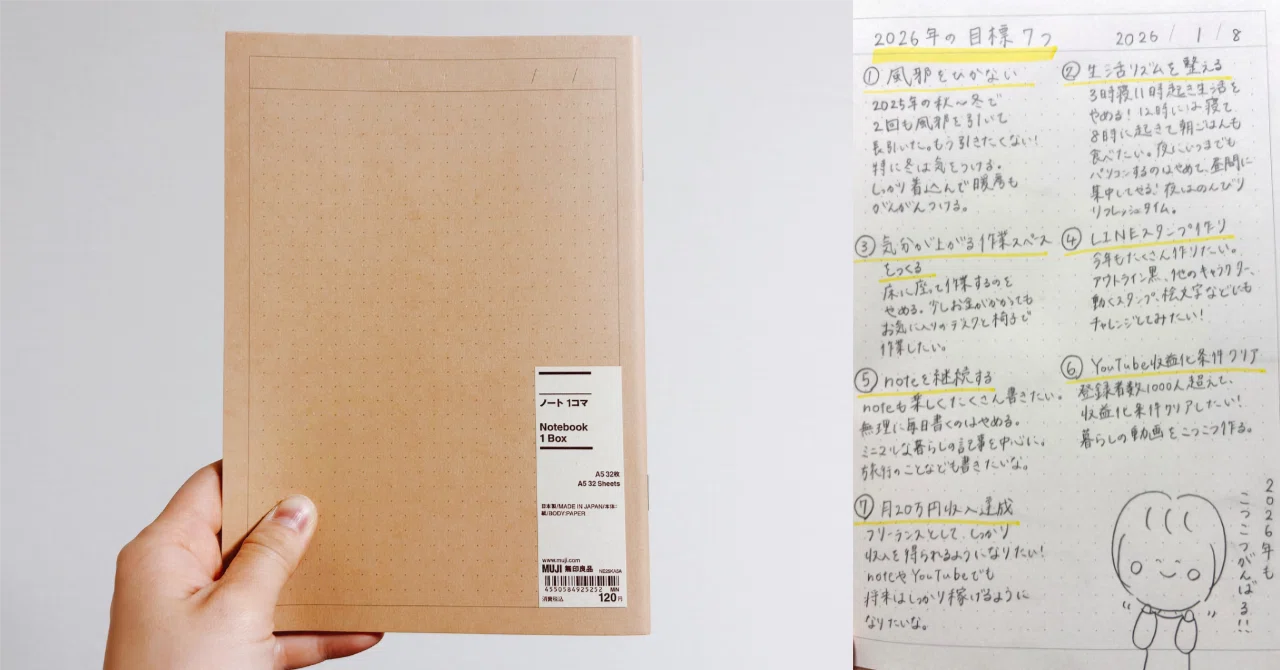 / /
ノート 1コマ
Notebook
1 Box
A5 32枚
A5 32 Sheets
日本製/MADE IN JAPAN/本体:
紙/BODY:PAPER
www.muji.com
MUJI 無印良品
4550584925252
消費税込 120円
2026年の目標7つ
2026/1/8
① 風邪をひかない
2025年の秋〜冬で
2回も風邪を引いて
長引いた。もう引きたくない!
特に冬は気をつける。
しっかり着込んで暖房も
がんがんつける。
② 生活リズムを整える
3時寝11時起き生活を
やめる!12時には寝て
8時に起きて朝ごはんも
食べたい。夜にいつまでも
パソコンするのはやめて、昼間に
集中してやる!夜はのんびり
リフレッシュタイム。
③ 気分が上がる作業スペース
をつくる
床に座って作業するのを
やめる。少しお金がかかっても
お気に入りのデスクと椅子で
作業したい。
④ LINEスタンプ作り
今年もたくさん作りたい。
アウトライン黒、他のキャラクター、
動くスタンプ、絵文字などにも
チャレンジしてみたい!
⑤ noteを継続する
noteも楽しくたくさん書きたい。
無理に毎日書くのはやめる。
ミニマルな暮らしの記事を中心に。
旅行のことなども書きたいな。
⑥ YouTube収益化条件クリア
登録者数1000人超えて、
収益化条件クリアしたい!
暮らしの動画をこつこつ作る。
⑦ 月20万円収入達成
フリーランスとして、しっかり
収入を得られるようになりたい!
noteやYouTubeでも
将来はしっかり稼げるように
なりたいな。
2026年も
こつこつがんばる!!